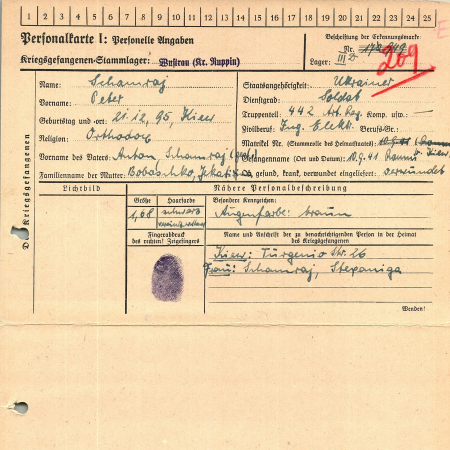 1 2 3 4 5 6 7 8 9 10 11 12 13 14 15 16 17 18 19 20 21 22 23 24 25
Personalkarte I: Personelle Angaben
Kriegsgefangenen-Stammlager: Wustrau (Kr. Ruppin)
Beschriftung der Erkennungsmarke
Nr.
209
Lager: III D
Des Kriegsgefangenen
Name: Schamraj
Vorname: Peter
Geburtstag und -ort: 21.12.95, Kiew
Religion: Orthodox
Vorname des Vaters: Anton, Schamraj
Familienname der Mutter: Bobaschko, Jekat
Staatsangehörigkeit: Ukrainer
Dienstgrad: Soldat
Truppenteil: 442 Art. Reg. Komp. usw.:
Zivilberuf: Ing. Elektr. Berufs-Gr.:
Matrikel Nr. (Stammrolle des Heimatstaates):
Gefangennahme (Ort und Datum): 10.9.41
Ob gesund, krank, verwundet eingeliefert: verwundet
Lichtbild
Nähere Personalbeschreibung
Größe
Haarfarbe
Besondere Kennzeichen:
1,68
schwarz
Augenfarbe: braun
Fingerabdruck
des rechten! Zeigefingers
Name und Anschrift der zu benachrichtigenden Person in der Heimat
des Kriegsgefangenen
Kiew: Turgenio Str. 26
Frau: Schamraj, Stepaniga
Wenden!